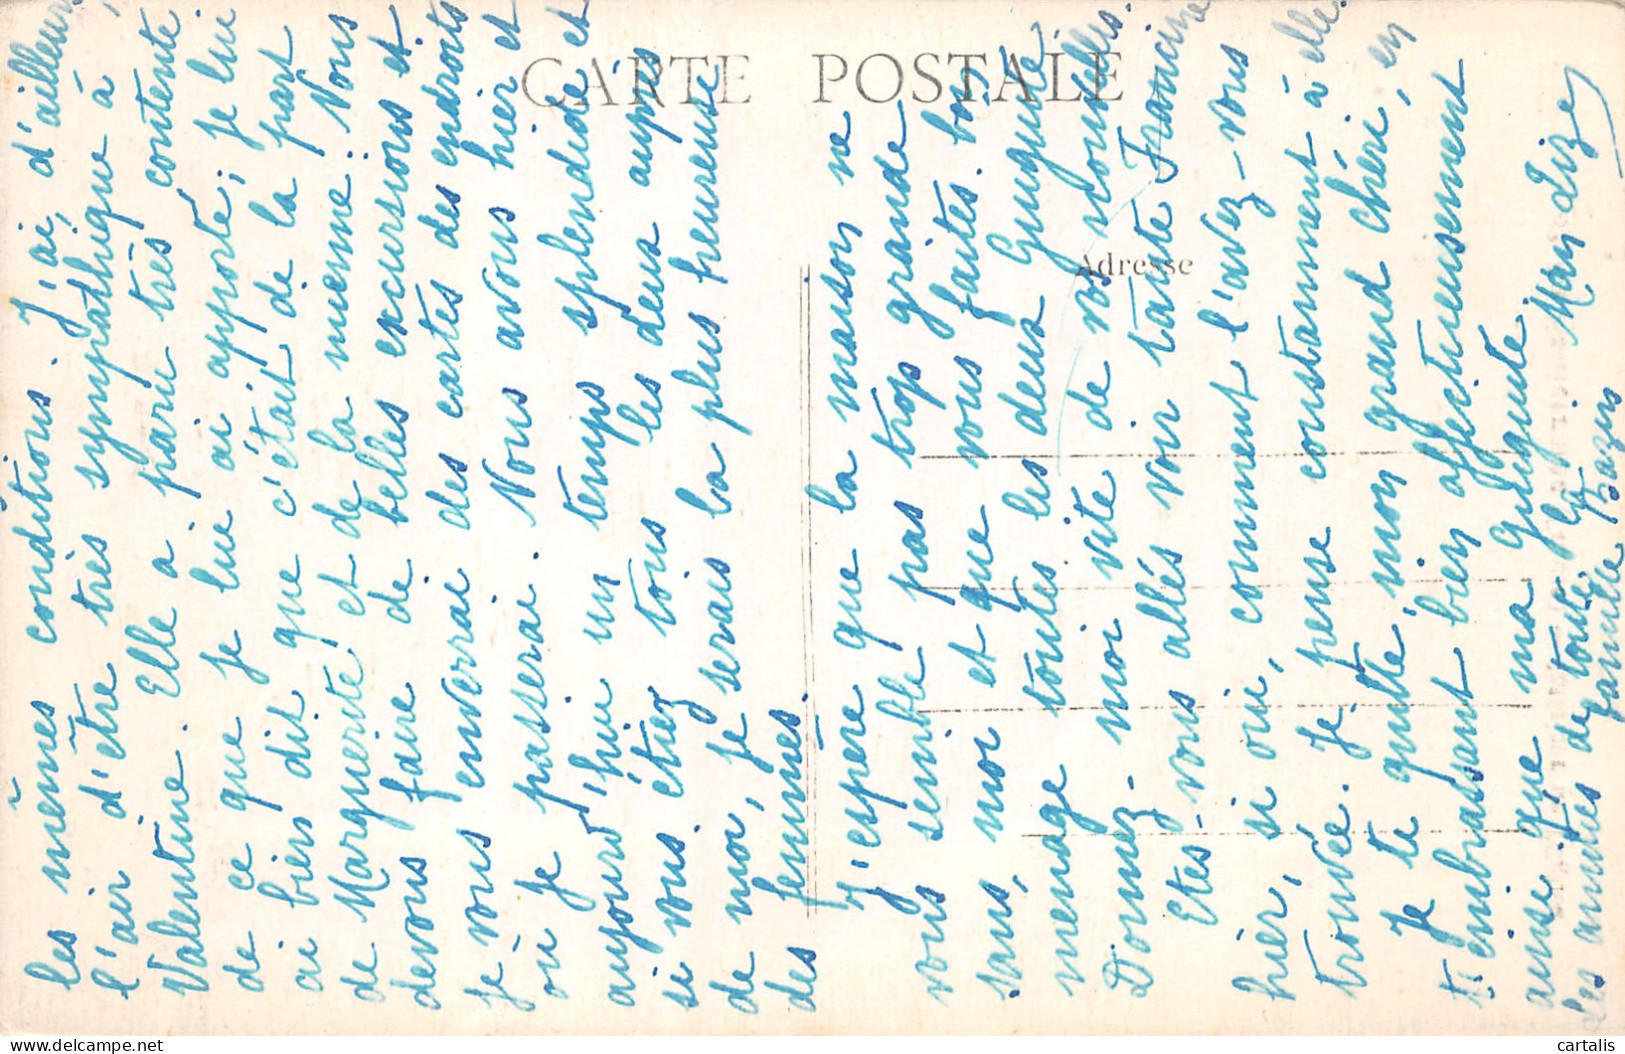 les mêmes conditions. J'ai, d'ailleurs
l'air d'être très sympathique à,
Valentine. Elle a paru très contente
de ce que je lui ai apporté; je lui
ai bien dit que c'était de la part
de Marguerite et de la mienne. Nous
devons faire de belles excursions et
je vous enverrai des cartes des endroits
où je passerai. Nous avons hier et
aujourd'hui un temps splendide et
si vous étiez tous les deux auprès
de moi, je serais la plus heureuse
des femmes.
J'espère que la maison ne
vous semble pas trop grande
sans moi et que vous faites bon
menage toutes les deux Guiguite.
Donnez-moi vite de vos nouvelles.
Etes-vous allés voir tante Francine
hier, si oui, comment l'avez-vous
trouvée. Je pense constamment à elle.
Je te quitte, mon grand chéri, en
t'embrassant bien affectueusement
ainsi que ma Guiguite.
Man Lize
Les amitiés de toute la
famille Bazin
CARTE POSTALE
Adresse
cartalis
delcampe.net